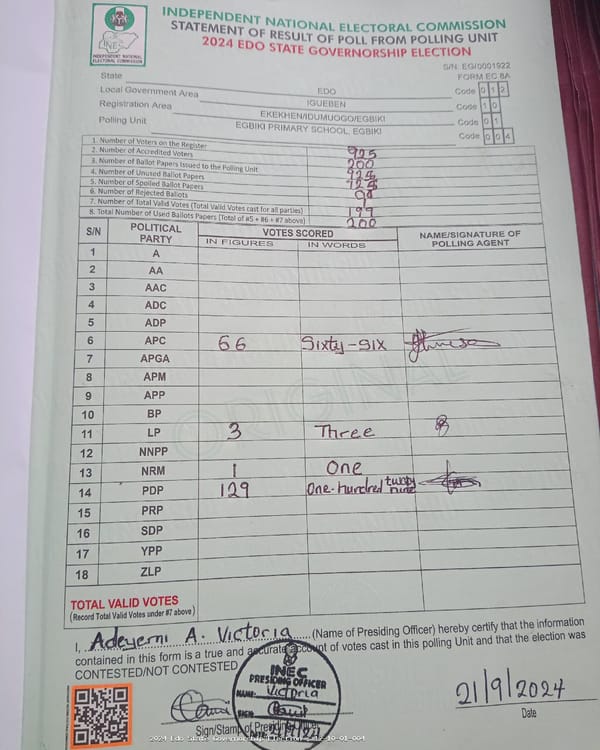 INDEPENDENT NATIONAL ELECTORAL COMMISSION
STATEMENT OF RESULT OF POLL FROM POLLING UNIT
2024 EDO STATE GOVERNORSHIP ELECTION
INEC
INDEPENDENT NATIONAL ELECTORAL COMMISSION
S/N: EG/0001922
FORM EC 8A
State EDO Code 0 1 2
Local Government Area IGUEBEN Code 1 0
Registration Area EKEKHEN/IDUMUOGO/EGBIKI Code 0 1
Polling Unit EGBIKI PRIMARY SCHOOL, EGBIKI Code 0 0 4
1. Number of Voters on the Register 925
2. Number of Accredited Voters 200
3. Number of Ballot Papers Issued to the Polling Unit
4. Number of Unused Ballot Papers
5. Number of Spoiled Ballot Papers
6. Number of Rejected Ballots 1
7. Number of Total Valid Votes (Total Valid Votes cast for all parties) 199
8. Total Number of Used Ballots Papers (Total of #5 + #6 + #7 above) 200
S/N POLITICAL PARTY VOTES SCORED NAME/SIGNATURE OF POLLING AGENT
IN FIGURES IN WORDS
1 A
2 AA
3 AAC
4 ADC
5 ADP
6 APC 66 Sixty-six
7 APGA
8 APM
9 APP
10 BP
11 LP 3 Three
12 NNPP
13 NRM 1 One
14 PDP 129 One-hundred twenty nine
15 PRP
16 SDP
17 YPP
18 ZLP
ORIGINAL
TOTAL VALID VOTES
(Record Total Valid Votes under #7 above)
I, Adeyemi A. Victoria (Name of Presiding Officer) hereby certify that the information
contained in this form is a true and accurate account of votes cast in this polling Unit and that the election was
CONTESTED/NOT CONTESTED
INEC
PRESIDING OFFICER
NAME: Victoria
SIGN:
DATE:
Sign/Stamp of Presiding
21/9/2024
Date